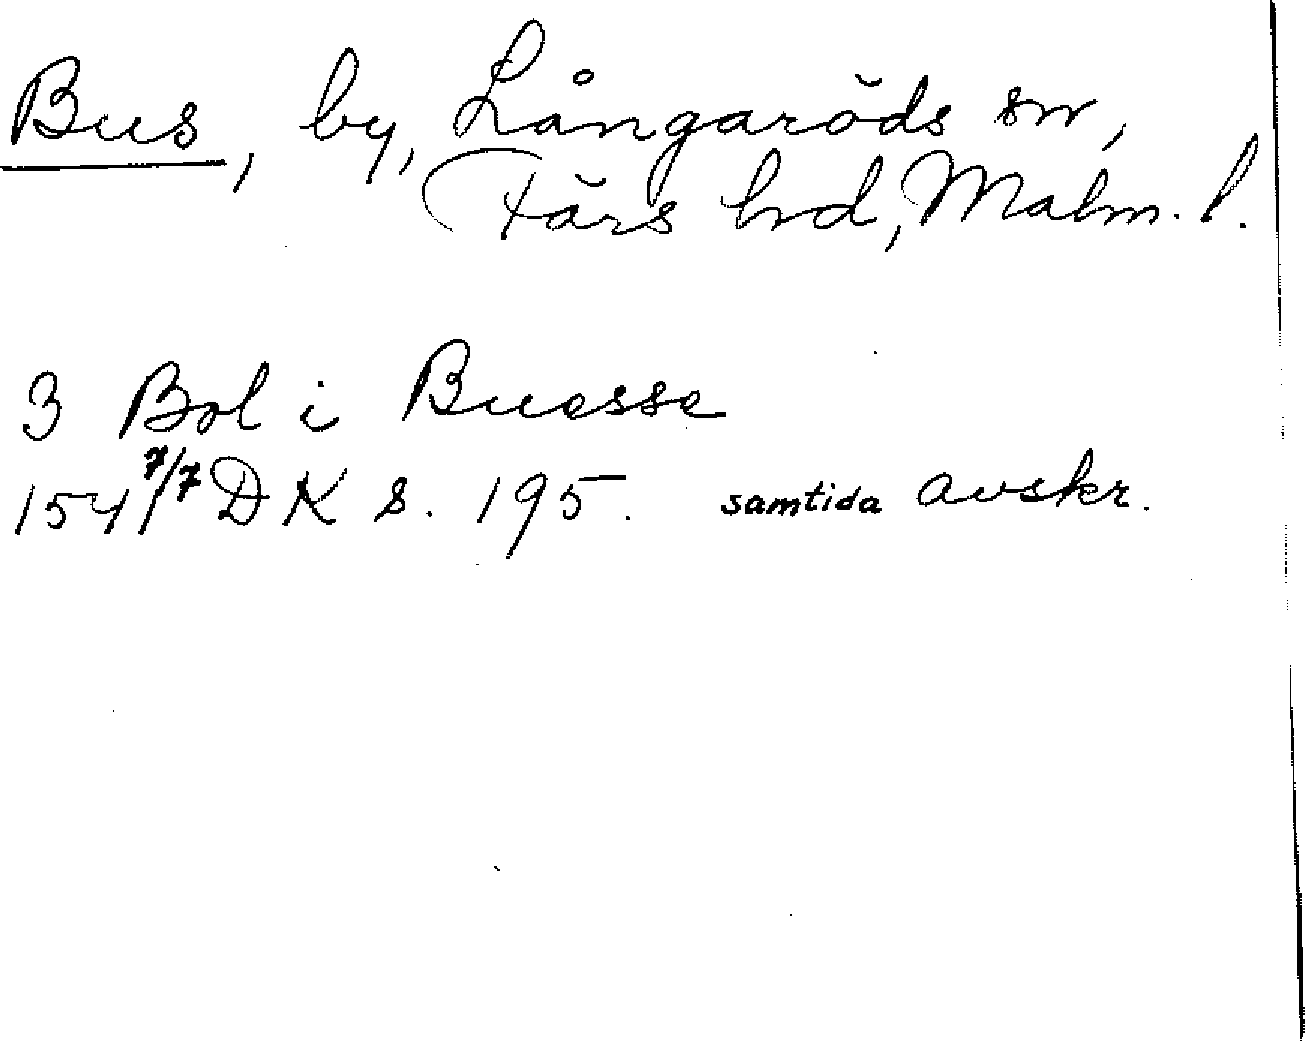 Bus, by, Långaröds sn,
Färs hrd, Malm. l.
3 Bol i Buesse
154 7/7 DK s. 195. samtida avskr.